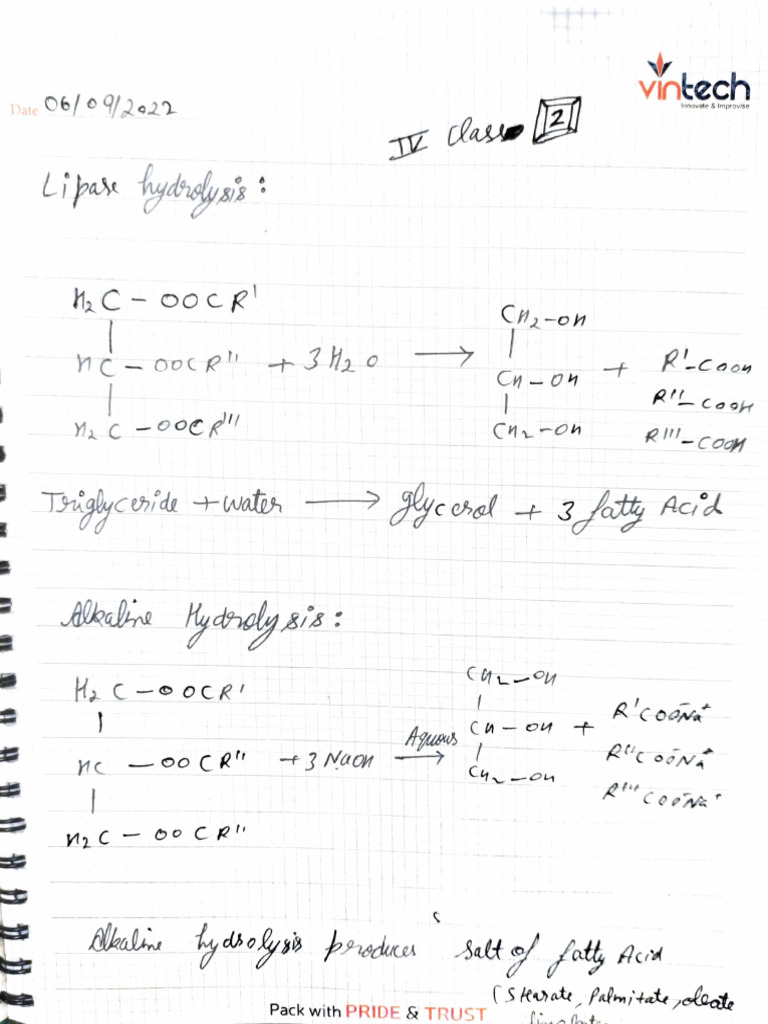 vintech
Innovate & Improvise
Date 06/09/2022
IV Class 2
Lipase hydrolysis:
H2C - OOCR'
HC - OOCR'' + 3H2O → 
H2C - OOCR'''
CH2-OH
CH-OH +
CH2-OH
R'-COOH
R''-COOH
R'''-COOH
Triglyceride + water → glycerol + 3 fatty Acid
Alkaline Hydrolysis:
H2C-OOCR'
HC -OOCR'' + 3NaOH Aquous →
H2C-OOCR''
CH2-OH
CH-OH +
CH2-OH
R'COO-Na+
R''COO-Na+
R'''COO-Na+
Alkaline hydrolysis produces salt of fatty Acid
(Stearate, Palmitate, oleate
Pack with PRIDE & TRUST